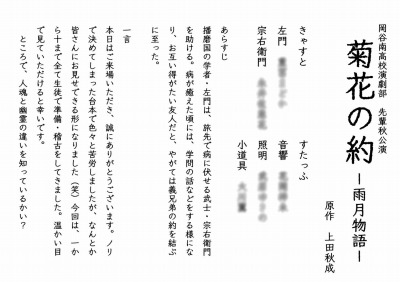 岡谷南高校演劇部 先輩秋公演
菊花の約
ー雨月物語ー
原作 上田秋成
きゃすと
左門
宗右衛門
すたっふ
音響
照明
小道具
あらすじ
播磨国の学者・左門は、旅先で病に伏せる武士・宗右衛門
を助ける。病が癒えた頃には、学問の話などをする様にな
り、お互い得がたい友人だと、やがては義兄弟の約を結ぶ
に至った。
一言
本日はご来場いただき、誠にありがとうございます。ノリ
で決めてしまった台本で色々と苦労しましたが、なんとか
皆さんにお見せできる形になりました(笑)今回は、一か
ら十まで全て生徒で準備・稽古をしてきました。温かい目
で見ていただけると幸いです。
ところで、人魂と幽霊の違いを知っているかい?